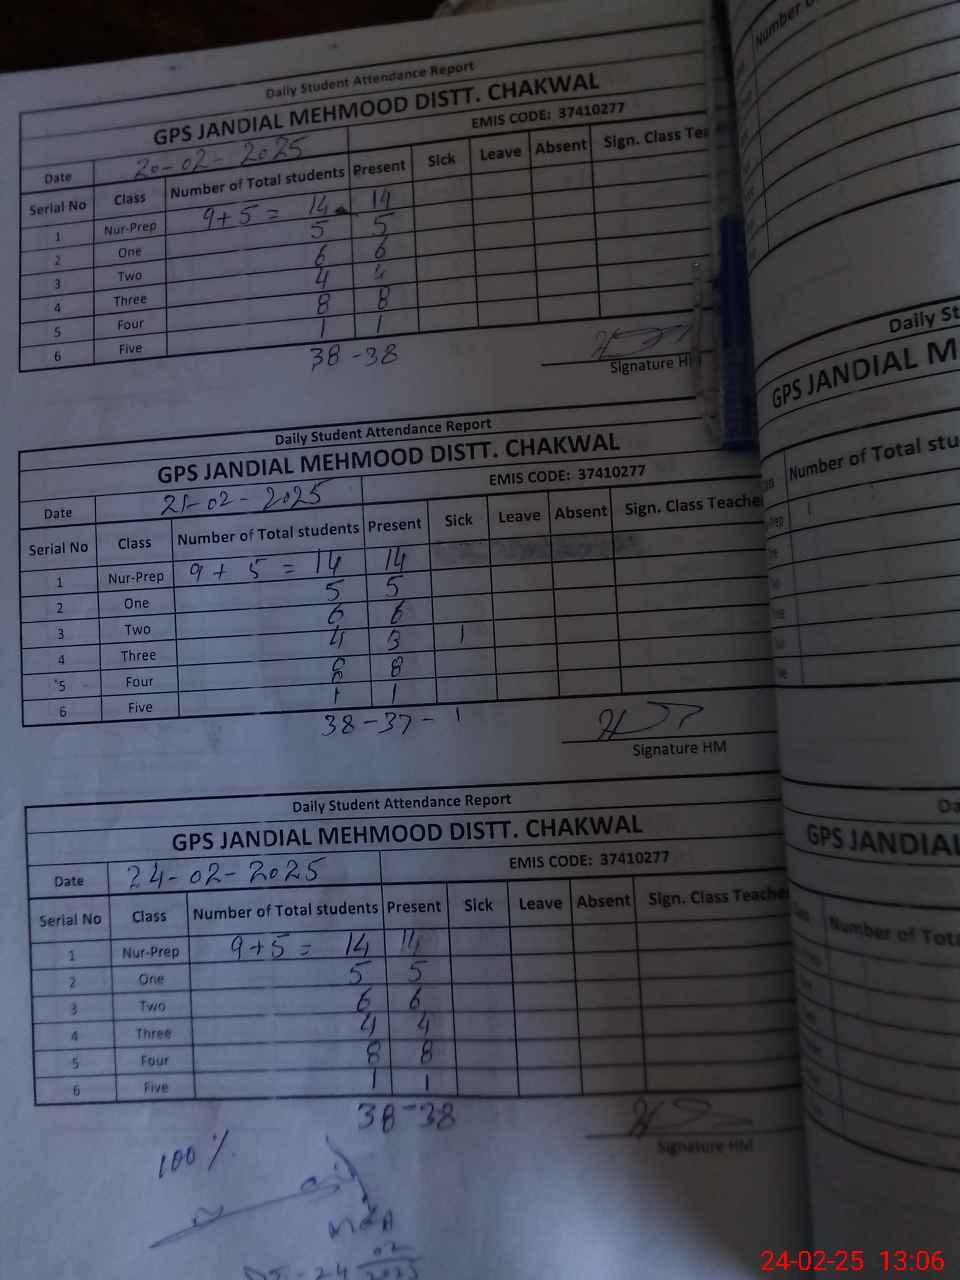 Daily Student Attendance Report
GPS JANDIAL MEHMOOD DISTT. CHAKWAL
EMIS CODE: 37410277
Date 20-02-2025
Serial No Class Number of Total students Present Sick Leave Absent Sign. Class Tea
1 Nur-Prep 9+5 = 14 14
2 One 5 5
3 Two 6 6
4 Three 4 4
5 Four 8 8
6 Five 1 1
38-38
Signature H
Daily Student Attendance Report
GPS JANDIAL MEHMOOD DISTT. CHAKWAL
EMIS CODE: 37410277
Date 21-02-2025
Serial No Class Number of Total students Present Sick Leave Absent Sign. Class Teache
1 Nur-Prep 9 + 5 = 14 14
2 One 5 5
3 Two 6 6
4 Three 4 3 1
5 Four 8 8
6 Five 1 1
38-37-1
Signature HM
Daily Student Attendance Report
GPS JANDIAL MEHMOOD DISTT. CHAKWAL
EMIS CODE: 37410277
Date 24-02-2025
Serial No Class Number of Total students Present Sick Leave Absent Sign. Class Teache
1 Nur-Prep 9+5 = 14 14
2 One 5 5
3 Two 6 6
4 Three 4 4
5 Four 8 8
6 Five 1 1
38-38
Signature HM
100 %
Number
Daily St
GPS JANDIAL M
Number of Total stu
GPS JANDIAL
Number of Tot
24-02-25 13:06